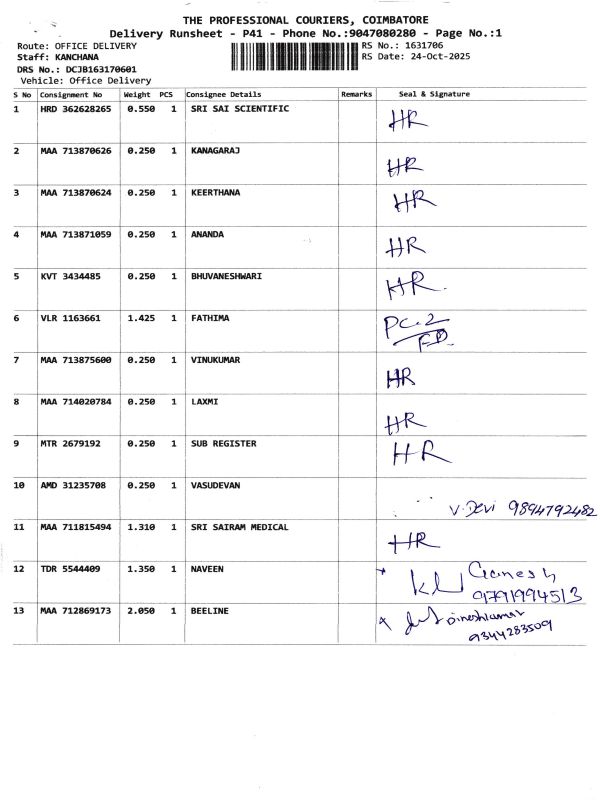 THE PROFESSIONAL COURIERS, COIMBATORE
Delivery Runsheet - P41 - Phone No.:9047080280 - Page No.:1
Route: OFFICE DELIVERY RS No.: 1631706
Staff: KANCHANA RS Date: 24-Oct-2025
DRS No.: DCJB163170601
Vehicle: Office Delivery
S No Consignment No Weight PCS Consignee Details Remarks Seal & Signature
1 HRD 362628265 0.550 1 SRI SAI SCIENTIFIC HR
2 MAA 713870626 0.250 1 KANAGARAJ HR
3 MAA 713870624 0.250 1 KEERTHANA HR
4 MAA 713871059 0.250 1 ANANDA HR
5 KVT 3434485 0.250 1 BHUVANESHWARI HR.
6 VLR 1163661 1.425 1 FATHIMA PC.2
7 MAA 713875600 0.250 1 VINUKUMAR HR
8 MAA 714020784 0.250 1 LAXMI HR
9 MTR 2679192 0.250 1 SUB REGISTER HR
10 AMD 31235708 0.250 1 VASUDEVAN V.Devi 9894792482
11 MAA 711815494 1.310 1 SRI SAIRAM MEDICAL HR
12 TDR 5544409 1.350 1 NAVEEN Ganesh
9791994513
13 MAA 712869173 2.050 1 BEELINE Dineshkumar
9344283509